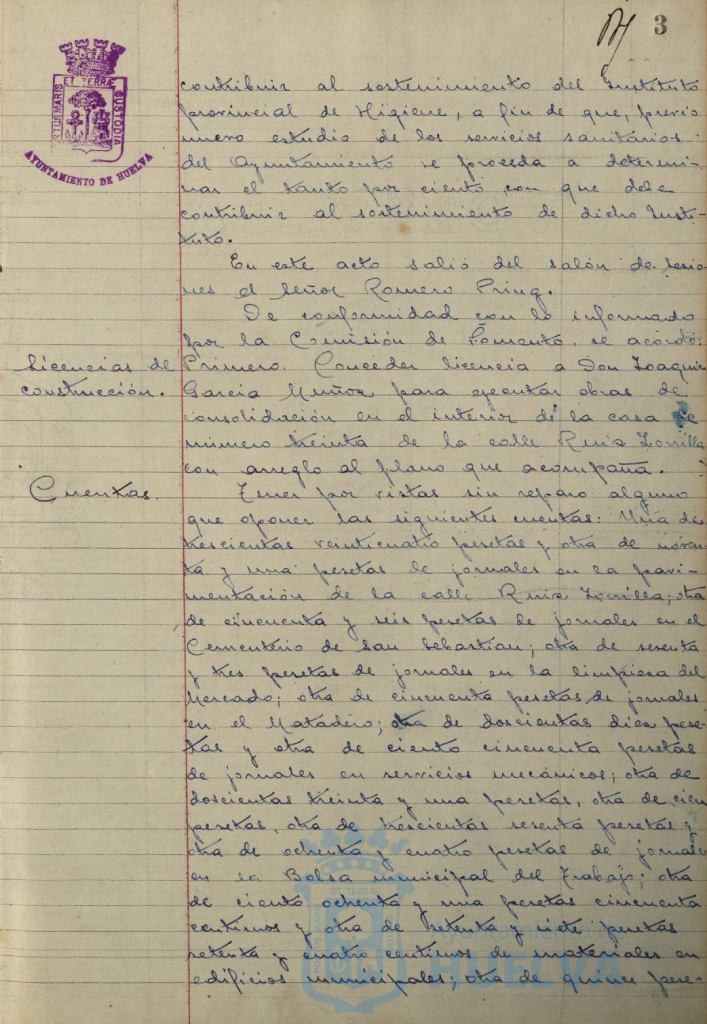 3
PORTUS MARIS ET TERRAE CUSTODIA
AYUNTAMIENTO DE HUELVA
contribuir al sostenimiento del Instituto
provincial de Higiene, a fin de que, previo
nuevo estudio de los servicios sanitarios
del Ayuntamiento se proceda a determi-
nar el tanto por ciento con que debe
contribuir al sostenimiento de dicho Insti-
tuto.
En este acto salió del salón de sesio-
nes el señor Romero Prinq.
De conformidad con lo informado
por la Comisión de Fomento, se acordó:
Licencias de
construcción.
Primero. Conceder licencia a Don Joaquin
Garcia Muñoz para ejecutar obras de
consolidación en el interior de la casa
número treinta de la calle Ruiz Zorrilla
con arreglo al plano que acompaña.
Cuentas.
Tener por vistas sin reparo alguno
que oponer las siguientes cuentas: Una de
trescientas veinticuatro pesetas y otra de noven-
ta y una pesetas de jornales en la pavi-
mentación de la calle Ruiz Zorrilla; otra
de cincuenta y seis pesetas de jornales en el
Cementerio de San Sebastian; otra de sesenta
y tres pesetas de jornales en la limpieza del
Mercado; otra de cincuenta pesetas de jornales
en el Matadero; otra de doscientas diez pese-
tas y otra de ciento cincuenta pesetas
de jornales en servicios mecánicos; otra de
doscientas treinta y una pesetas, otra de cien
pesetas, otra de trescientas sesenta pesetas y
otra de ochenta y cuatro pesetas de jornales
en la Bolsa municipal del Trabajo; otra
de ciento ochenta y una pesetas cincuenta
centimos y otra de setenta y siete pesetas
setenta y cuatro centimos de materiales en
edificios municipales; otra de quince pese-
HUELVA